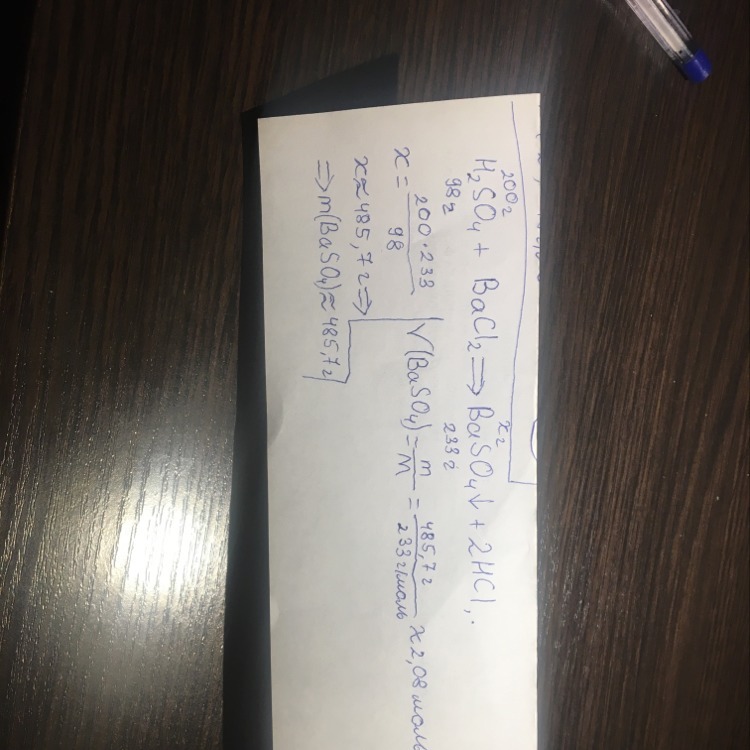 200г xг
H₂SO₄ + BaCl₂ ⇒ BaSO₄↓ + 2HCl,.
98г 233г
x = 200·233 / 98
x ≈ 485,7г ⇒
⇒ m(BaSO₄) ≈ 485,7г
√(BaSO₄) = m/M = 485,7г / 233г/моль ≈ 2,08 моль